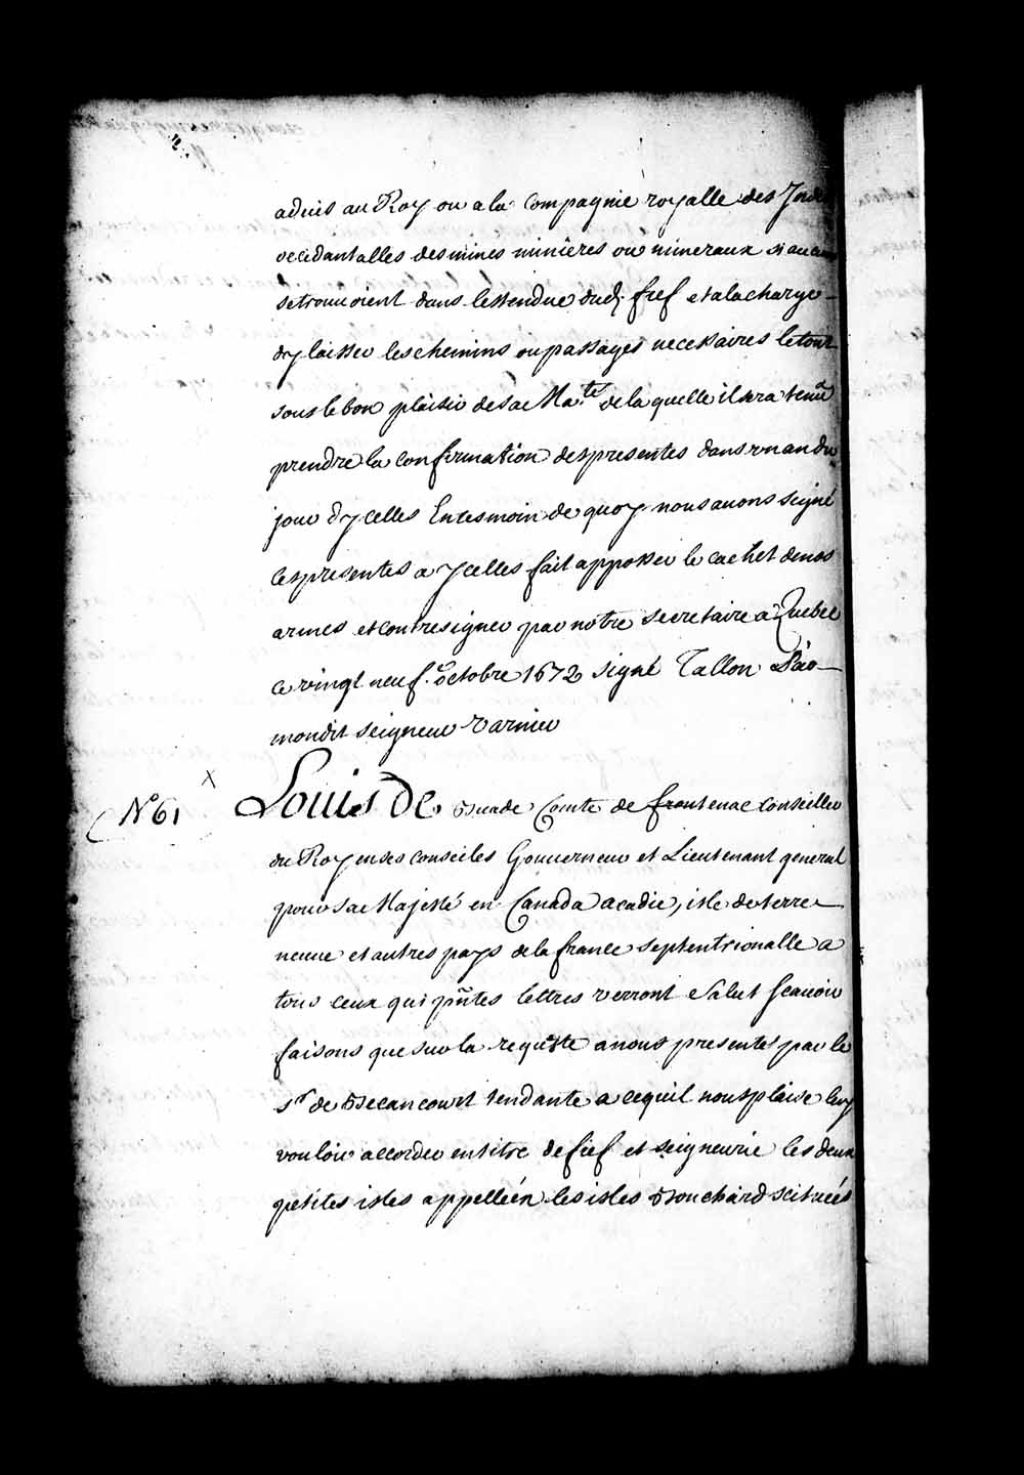 aduis au Roy ou a la Compagnie royalle des Indes
occidantalles des mines minieres ou mineraux si aucuns
se trouuoient dans lestendue dud. fief et a la charge
dy laisser les chemins ou passages necessaires le tout
sous le bon plaisir de sa Ma.té de la quelle il sera tenu
prendre la confirmation des presentes dans un an du
jour d'ycelles En tesmoin de quoy nous auons signé
ces presentes a ycelles fait apposser le cachet de nos
armes et contresigner par notre secretaire a Quebec
ce vingt neuf.e octobre 1672 signé Tallon Par
mondit seigneur Varnier
X
N.o 61 Louis De Buade Comte de frontenac Conseiller
du Roy en ses conseiles Gouuerneur et Lieutenant general
pour sa Majesté en Canada acadie, isle de terre
neuue et autres pays de la france septentrionalle a
tous ceux qui pñtes lettres verront Salut scauoir
faisons que sur la requeste a nous presentes par le
S.r de Becancourt tendante a cequil nous plaise luy
vouloir accorder en titre de fief et seigneurie les deux
petites isles appelleés les isles Bouchard scitueés